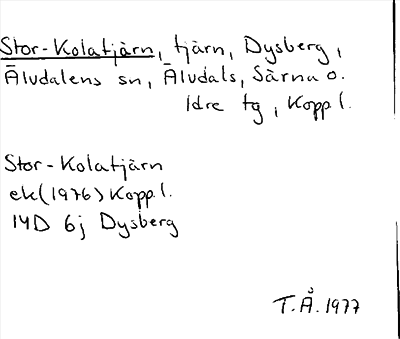 Stor-Kolatjärn, tjärn, Dysberg,
Älvdalens sn, Älvdals, Särna o.
Idre tg, Kopp l.
Stor-Kolatjärn
ek (1976) Kopp l.
14D 6j Dysberg
T.Å. 1977